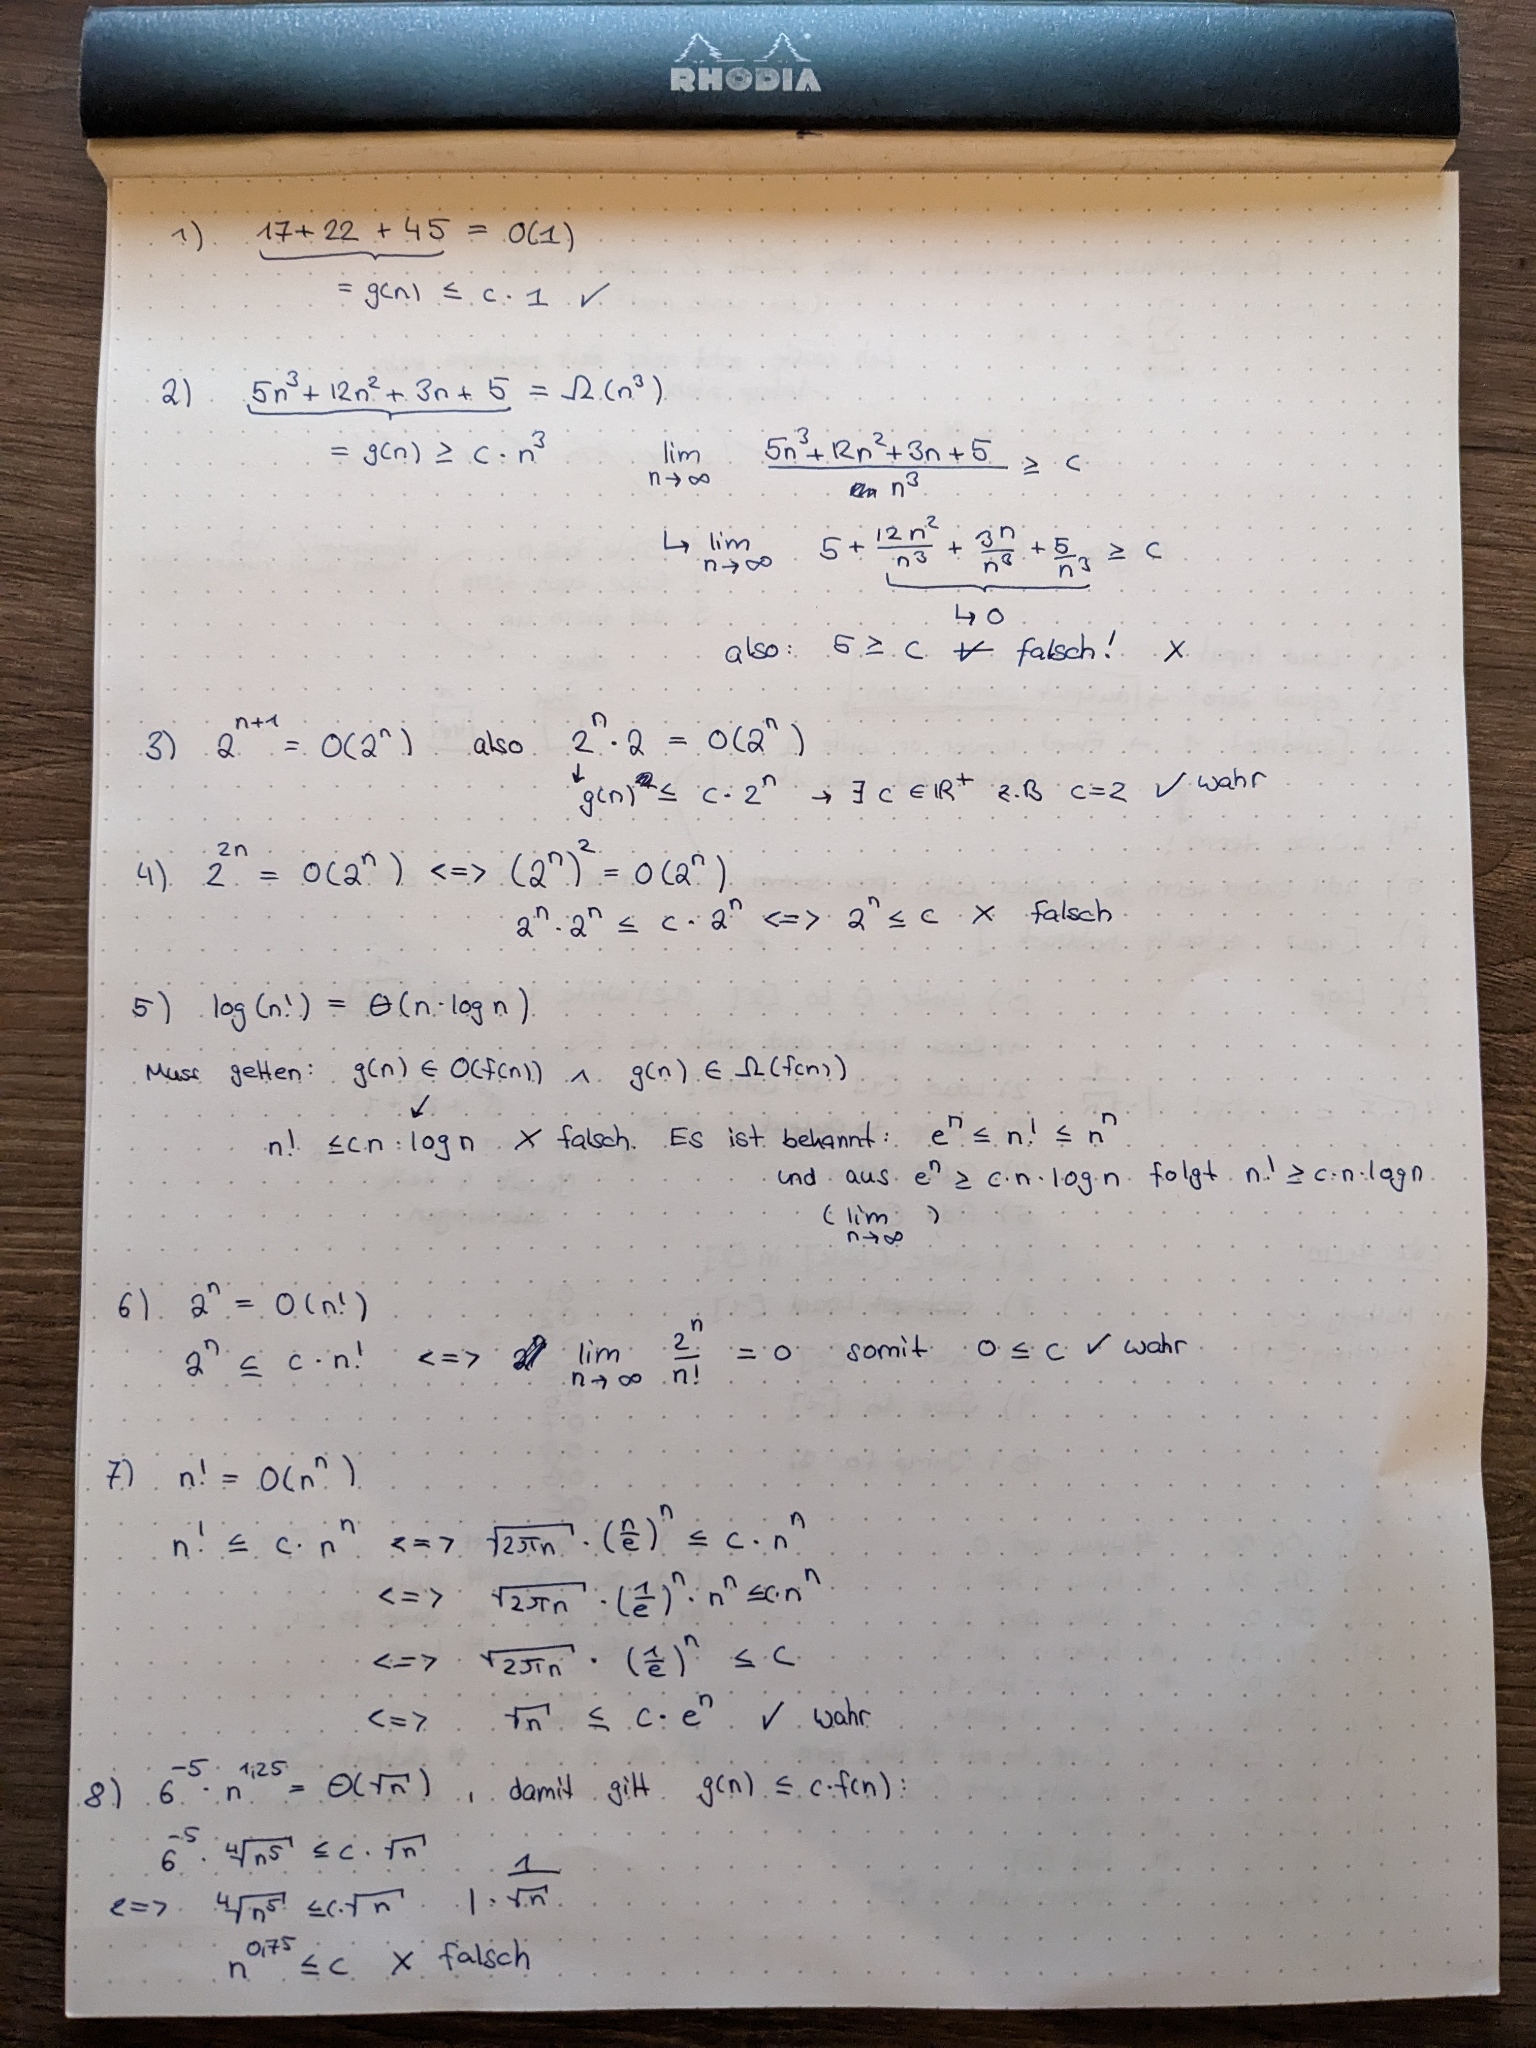 RHODIA
1) 17 + 22 + 45 = O(1)
= g(n) ≤ c · 1 ✓
2) 5n³ + 12n² + 3n + 5 = Ω(n³)
= g(n) ≥ c · n³ lim n→∞ (5n³ + 12n² + 3n + 5)/n³ ≥ c
↳ lim n→∞ 5 + 12n²/n³ + 3n/n³ + 5/n³ ≥ c
↳ 0
also: 5 ≥ c falsch! x
3) 2ⁿ⁺¹ = O(2ⁿ) also 2ⁿ · 2 = O(2ⁿ)
↓ g(n) ≤ c · 2ⁿ → ∃ c ∈ ℝ⁺ z.B c=2 ✓ wahr
4) 2²ⁿ = O(2ⁿ) <=> (2ⁿ)² = O(2ⁿ)
2ⁿ · 2ⁿ ≤ c · 2ⁿ <=> 2ⁿ ≤ c x falsch
5) log(n!) = Θ(n · log n)
Muss gelten: g(n) ∈ O(f(n)) ∧ g(n) ∈ Ω(f(n))
↓
n! ≤ c n · log n x falsch. Es ist bekannt: eⁿ ≤ n! ≤ nⁿ
und aus eⁿ ≥ c·n·log n folgt n! ≥ c·n·log n
( lim n→∞ )
6) 2ⁿ = O(n!)
2ⁿ ≤ c · n! <=> lim n→∞ 2ⁿ/n! = 0 somit 0 ≤ c ✓ wahr
7) n! = O(nⁿ)
n! ≤ c · nⁿ <=> √(2πn) · (n/e)ⁿ ≤ c · nⁿ
<=> √(2πn) · (1/e)ⁿ · nⁿ ≤ c·nⁿ
<=> √(2πn) · (1/e)ⁿ ≤ c
<=> √n ≤ c · eⁿ ✓ wahr
8) 6⁻⁵ · n^1,25 = Θ(√n), damit gilt g(n) ≤ c·f(n):
6⁻⁵ · ⁴√n⁵ ≤ c · √n
<=> ⁴√n⁵ ≤ c·√n | · 1/√n
n^0,75 ≤ c x falsch